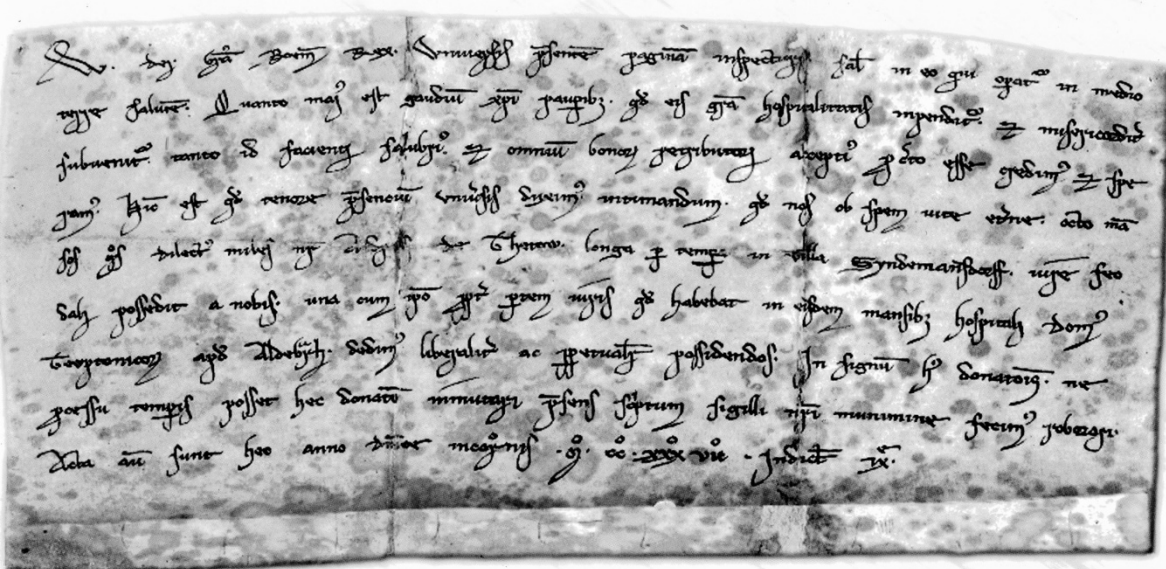 W. dei gr̄a Boem̄ Rex. Vniu̓sis p̄sentē paginā inspecturis  in eo qui op̄at᷒ in medio
terre salutē. Quanto mag̓ est gaudiū xp̄i paup̓ib; qd̓ eis gr̄a hospitalitatis inpendit᷒. ⁊ misericordit̓
subuenit᷒. tanto id facienti salubri᷒. ⁊ omniū bonor᷒ retributori accepti᷒ p̄ c̓to esse credim᷒ ⁊ spe
ram᷒. Hinc est qd̓ tenore p̄senciū vniu̓sis duxim᷒ intimandum. qd̓ nos ob spem uite et̓ne. octo mā
sos q̊s dilect᷒ miles nr̄ de Thetow. longo p̱ temp̱e in villa Syndemansdorff. iure feo
dali possedit a nobis. una cum ip̄o p̱tem iuris qd̓ habebat in eisdem mansib; hospitali dom᷒
Teuptonicor᷒ apd̓ dedim᷒ liberalit̓ ac p̱petualit̓ possidendos. In signū h᷒ donatoīs. ne
p̄cessu temp̱is posset hec donatō inmutari p̄sens sc̓ptum sigilli nr̄i munimine fecim᷒ roborari.
Acta aū sunt hec anno dn̄ice incar̄nis .M̊. CC̊. XXX̊ VII̊. Indict̄ IX̄.